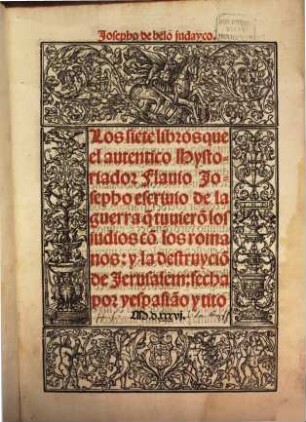 Josepho de belo judayco.
Los siete libros que
el autentico Hysto-
riador Flauio Jo-
sepho escriuio de la
guerra q̃ tuuierõ los
judios cõ los roma
nos: y la destruyciõ
de Jerusalem: fecha
por vespasião y tito
M.d.xxxvi.